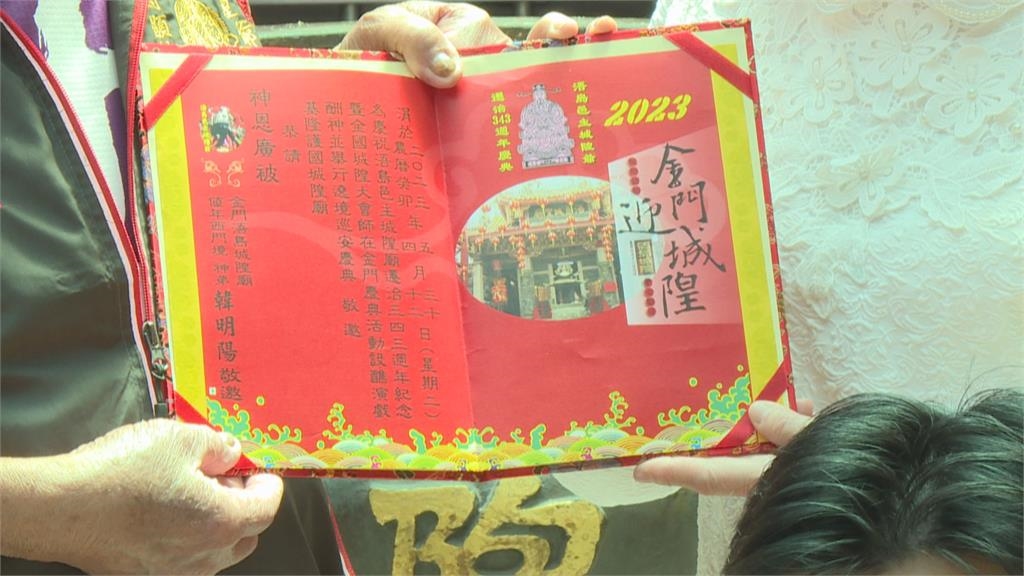 2023
金門迎城隍
浯島邑主城隍爺
遷治343週年慶典
涓於二〇二三農曆癸卯年五四月三十十二日(星期二)
為慶祝浯島邑主城隍廟遷治三四三週年紀念
暨全國城隍大會師在金門慶典活動設醮演戲
酬神並舉行遶境巡安慶典 敬邀
基隆護國城隍廟
恭請
神恩廣被
金門浯島城隍廟
值年西門境 神弟 韓明陽 敬邀